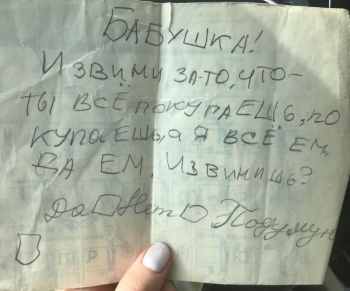 БАБУШКА!
ИЗВИМИ ЗА-ТО, ЧТО-
ТЫ ВСЁ ПОКУПАЕШЬ, ПО
КУПАЕШЬ, А Я ВСЁ ЕМ,
ДА ЕМ. ИЗВИНИШЬ?
Да Нет Подумую